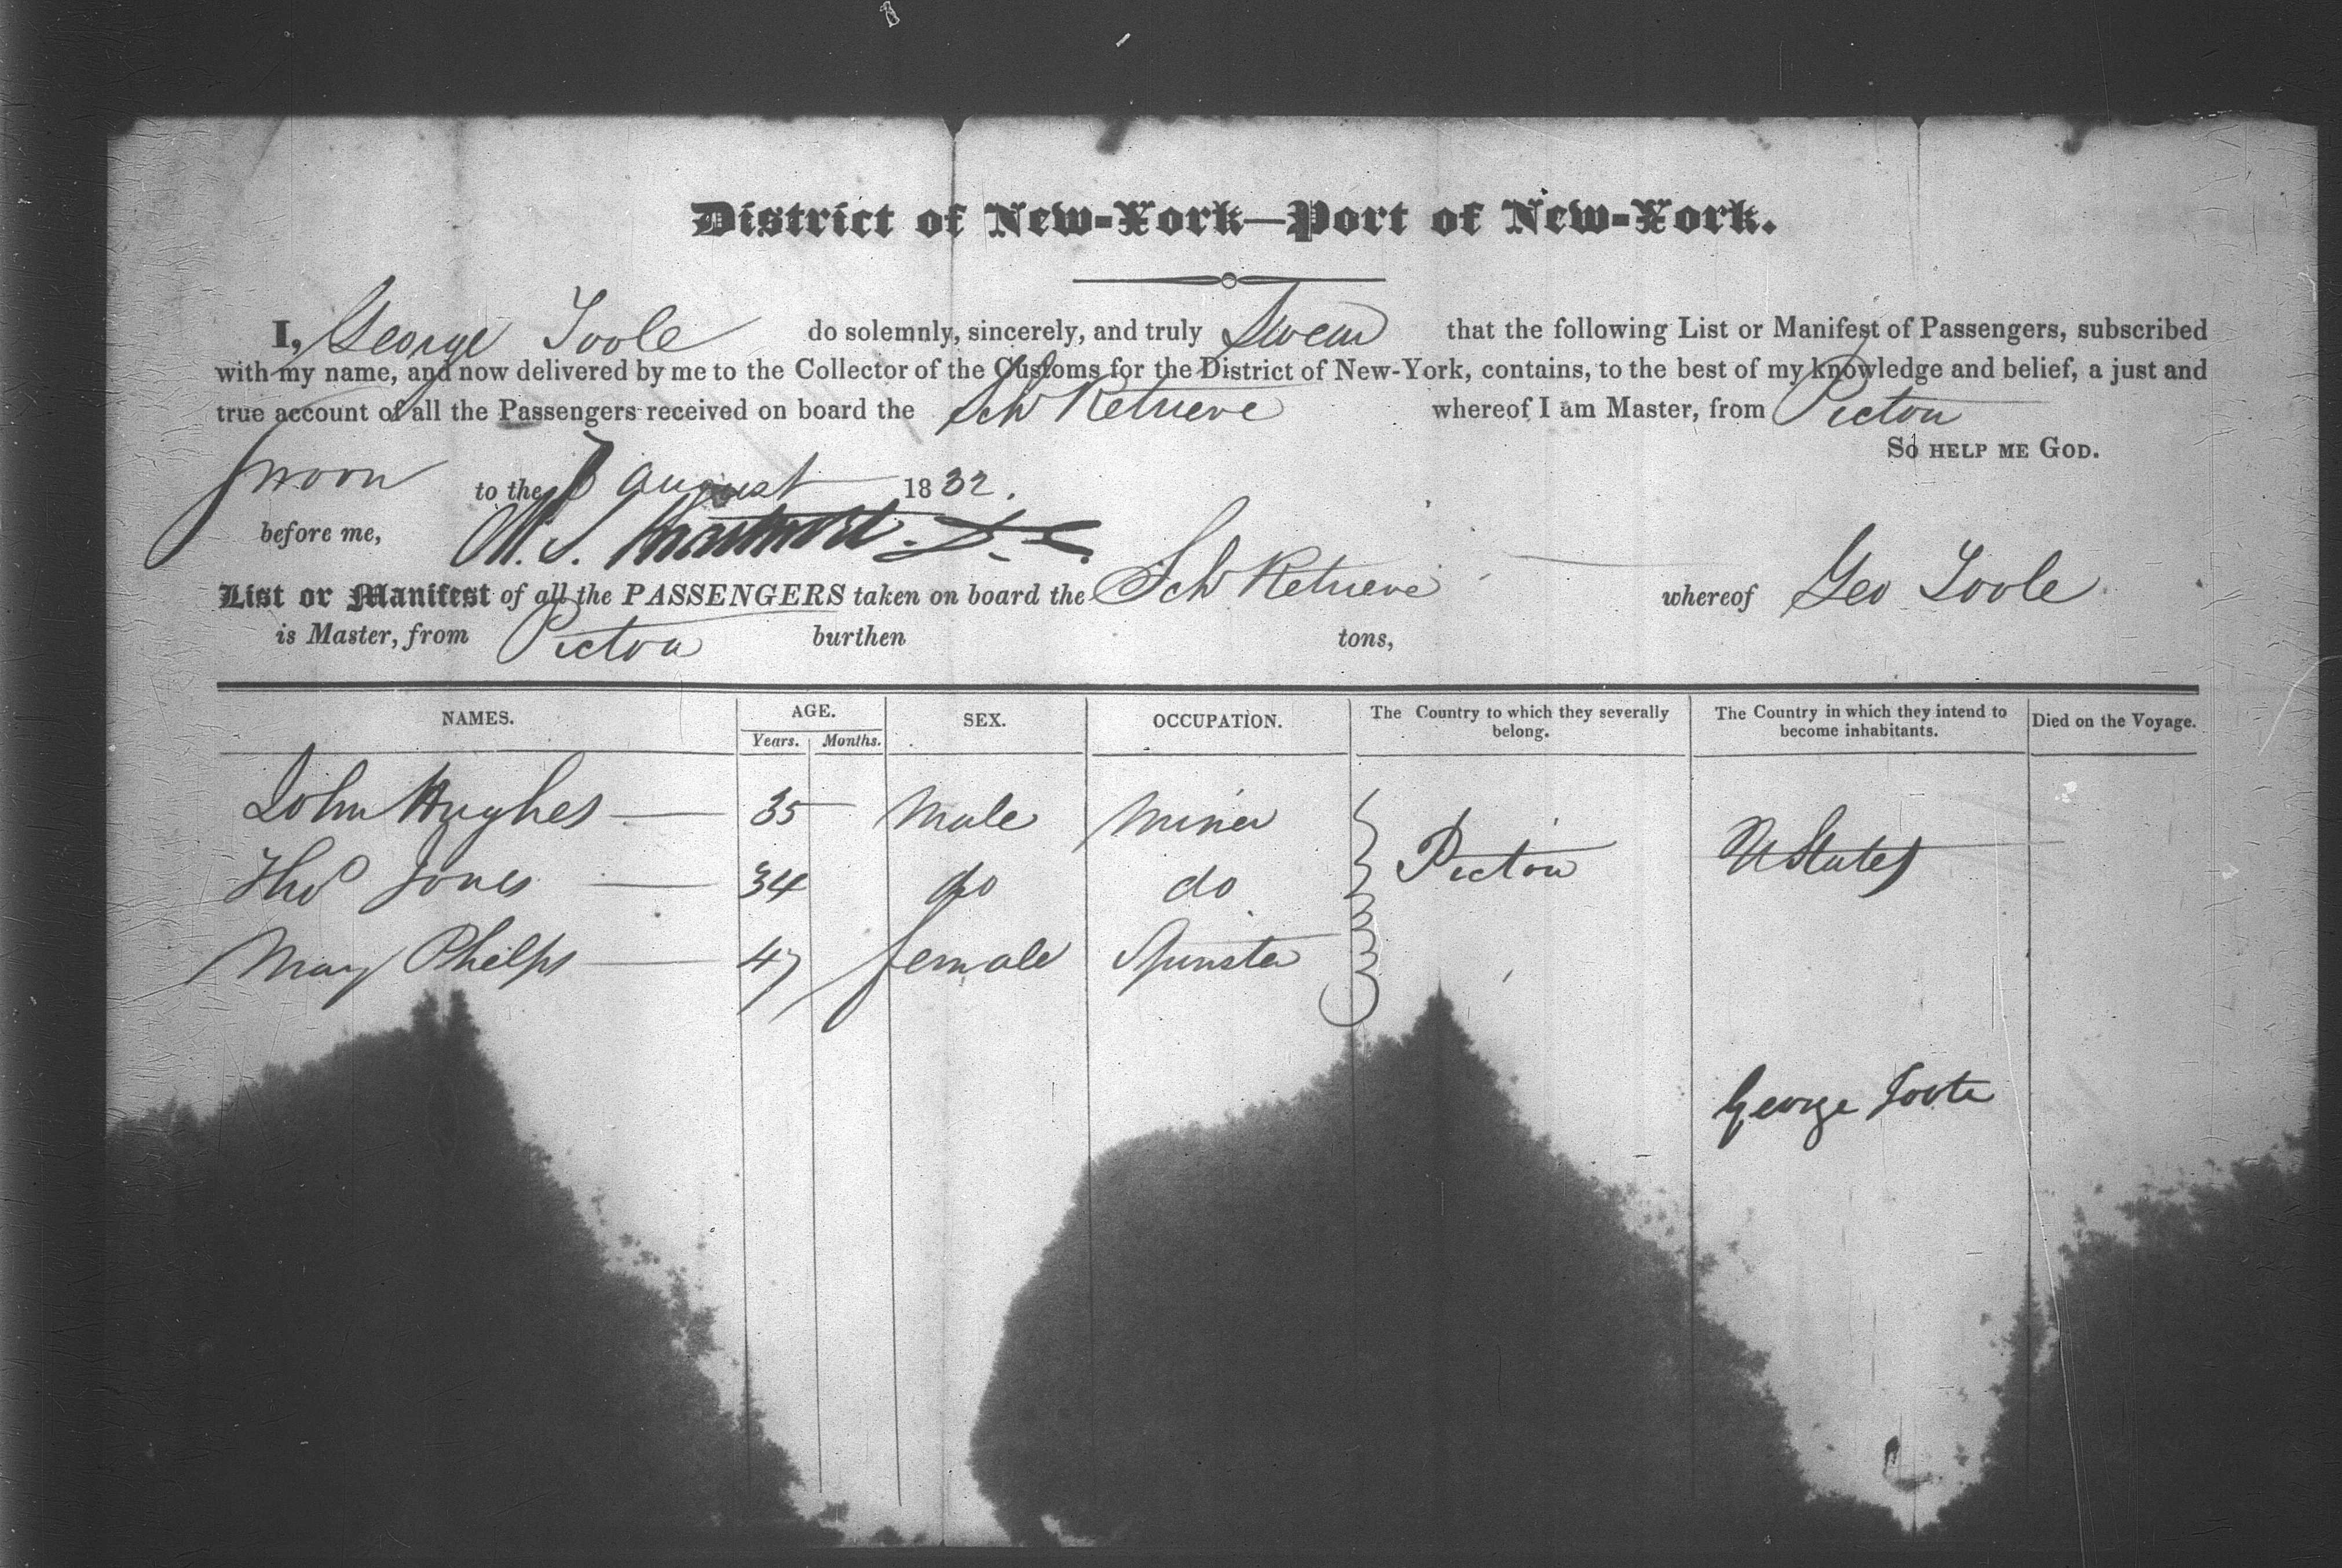 District of New-York—Port of New-York.
I, George Toole do solemnly, sincerely, and truly Swear that the following List or Manifest of Passengers, subscribed
with my name, and now delivered by me to the Collector of the Customs for the District of New-York, contains, to the best of my knowledge and belief, a just and
true account of all the Passengers received on board the Sch Retrieve whereof I am Master, from Pictou
So HELP ME GOD.
Sworn to the August 1832.
before me,
List or Manifest of all the PASSENGERS taken on board the Sch Retrieve whereof Geo Toole
is Master, from Pictou burthen tons,
NAMES. AGE. SEX. OCCUPATION. The Country to which they severally belong. The Country in which they intend to become inhabitants. Died on the Voyage.
Years. Months.
John Hughes 35 Male Miner
Thos Jones 34 do do Pictou UStates
Mary Phelps 47 female Spinster
George Toole